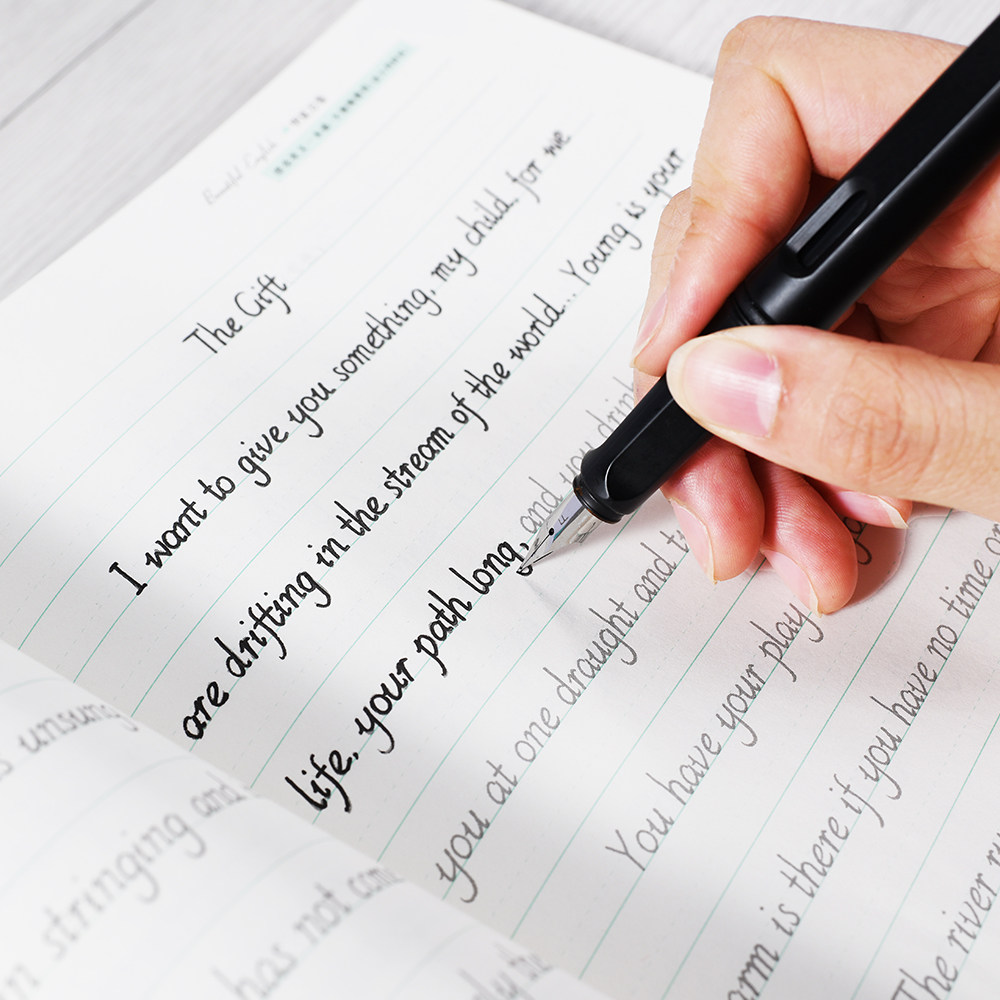 Beautiful English
The Gift
I want to give you something, my child, for we
are drifting in the stream of the world... Young is your
life, your path long, and you drink
you at one draught and t
You have your play
arm is there if you have no time or
The river ru
s unsung
n stringing and
has not com
ly th